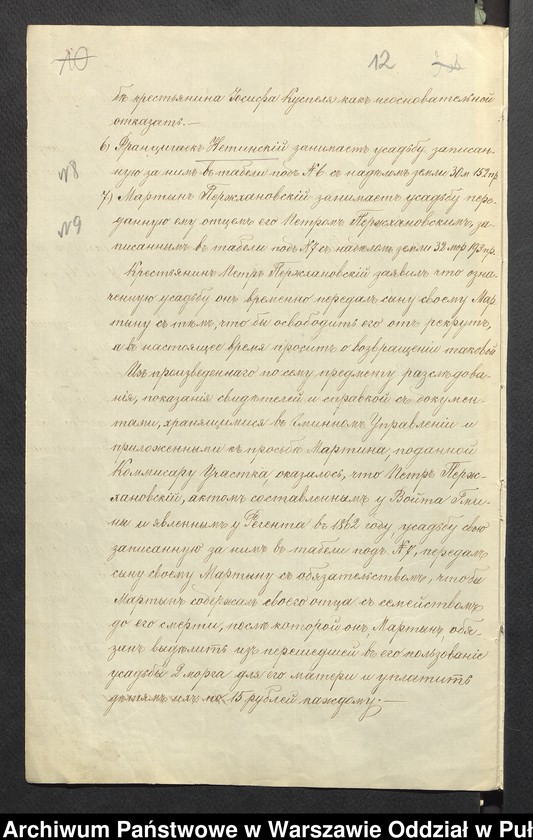 10
12
бѣ крестьянина Іосифа Кустеля какъ неосновательной
отказать.—
6) Францишекъ Нетинскій занимаетъ усадьбу записан-
№8
ную за нимъ въ табели подъ №6 съ надѣломъ земли 30 м 152 пр.
7) Мартынъ Пержхановскій занимаетъ усадьбу пере-
№9
данную ему отцемъ его Петромъ Пержхановскимъ, за-
писаннымъ въ табели подъ №7 съ надѣломъ земли 32 мор 193 пр.
Крестьянинъ Петръ Пержхановскій заявилъ что озна-
ченную усадьбу онъ временно передалъ сыну своему Мар-
тыну съ тѣмъ, что бы освободить его отъ рекрутъ,
а въ настоящее время проситъ о возвращеніи таковой
Изъ произведеннаго по сему предмету разслѣдова-
нія, показанія свидѣтелей и справкой съ докумен-
тами, хранящимися въ Гминномъ Управленіи и
приложенными къ просьбѣ Мартина, поданной
Коммисару Участка, оказалось, что Петръ Перж-
хановскій, актомъ составленнымъ у Войта Гми-
ны и явленнымъ у Регента въ 1862 году усадьбу свою
записанную за нимъ въ табели подъ №7, передалъ
сыну своему Мартыну съ обязательствомъ, чтобы
Мартынъ содержалъ своего отца съ семействомъ
до его смерти, послѣ которой онъ, Мартынъ, обя-
занъ выдѣлить изъ перешедшей въ его пользованіе
усадьбы 2 морга для его матери и уплатить
дѣтямъ ихъ по 15 рублей каждому.—
Archiwum Państwowe w Warszawie Oddział w Puł